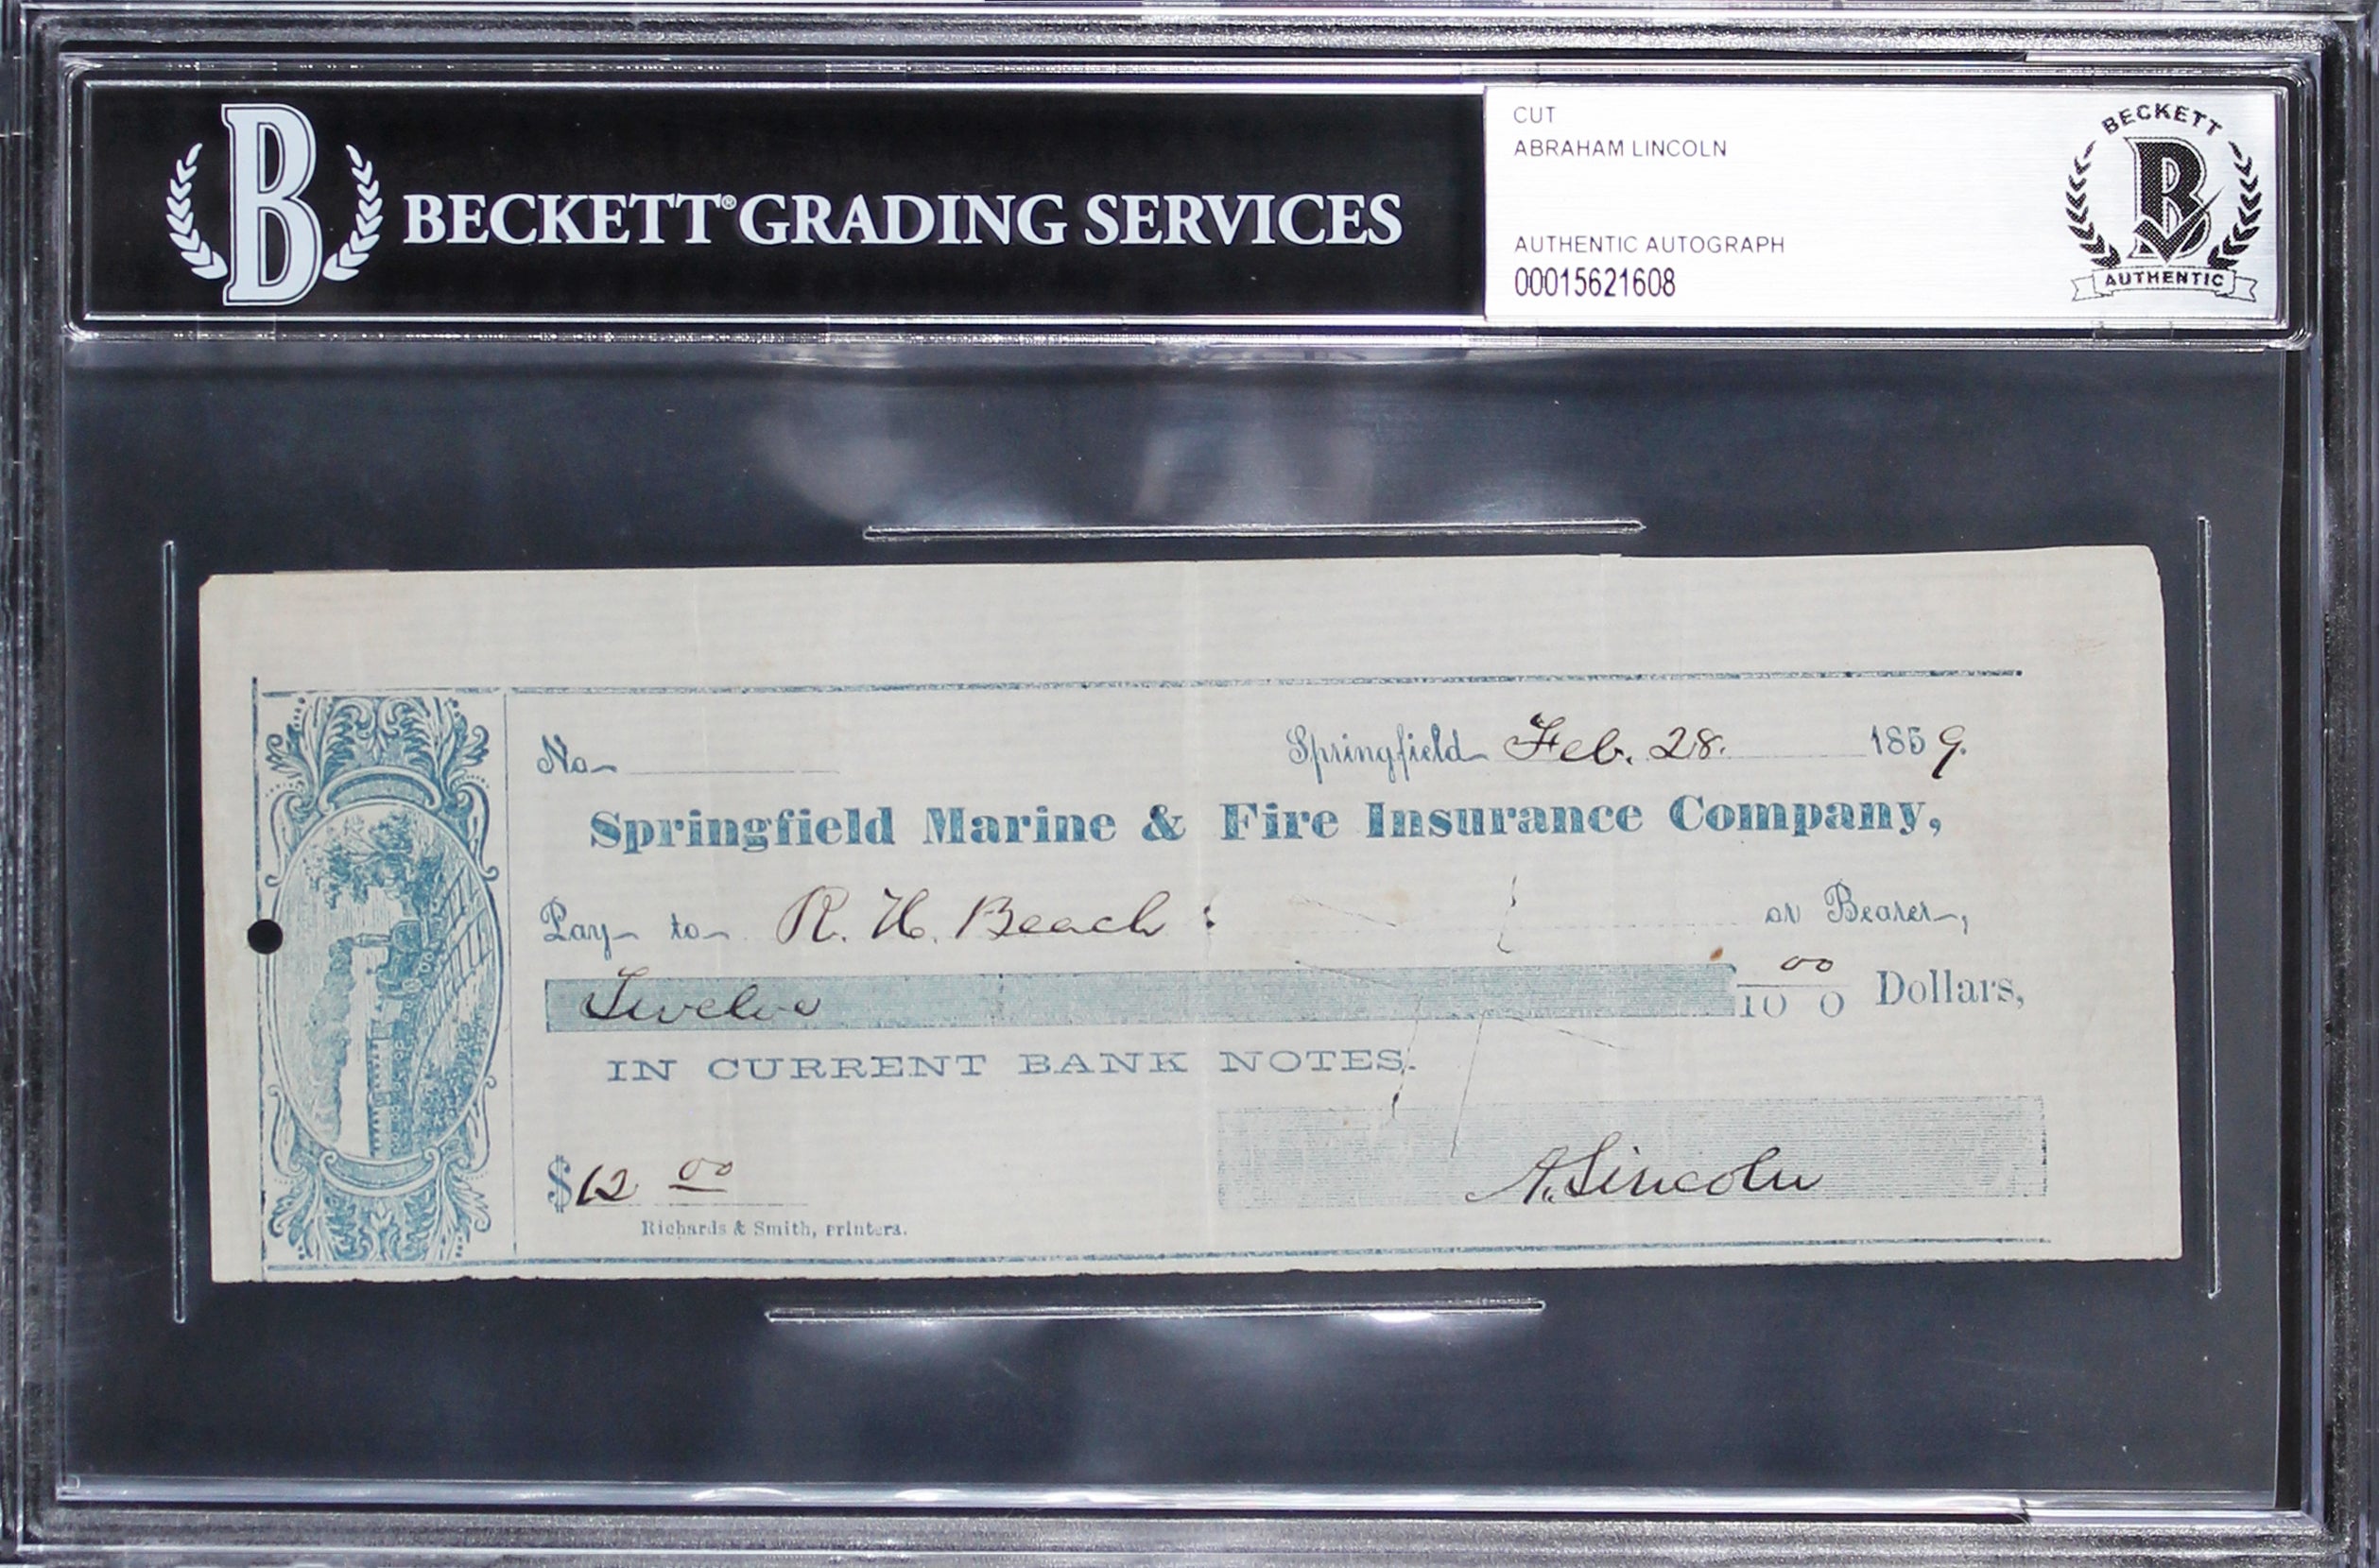 BECKETT® GRADING SERVICES
CUT
ABRAHAM LINCOLN
AUTHENTIC AUTOGRAPH
00015621608
BECKETT
B
AUTHENTIC
No
Springfield Feb. 28. 1859.
Springfield Marine & Fire Insurance Company,
Pay to R. H. Beach: or Bearer,
Twelve 00/100 Dollars,
IN CURRENT BANK NOTES.
$12 00
A. Lincoln
Richards & Smith, Printers.